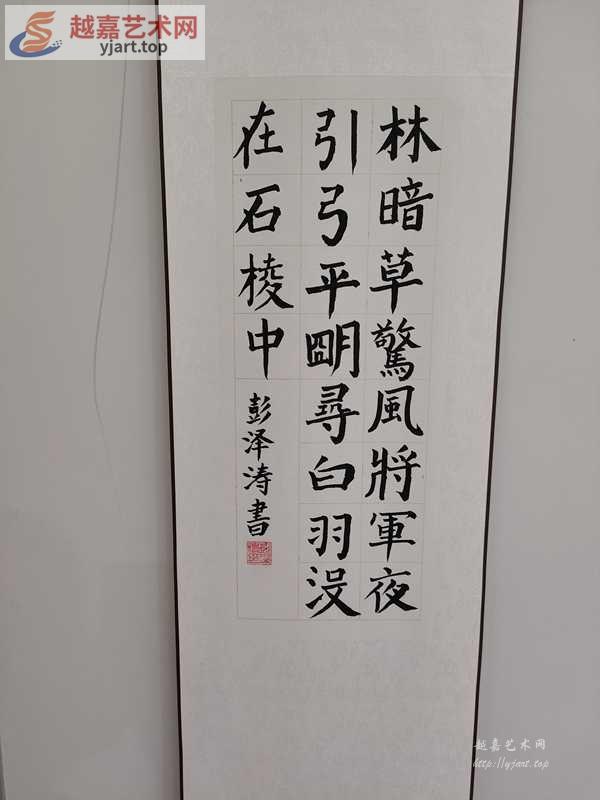 越嘉艺术网
yjart.top
林暗草驚風將軍夜
引弓平明尋白羽没
在石棱中
彭泽涛書
越嘉艺术网
http://yjart.top